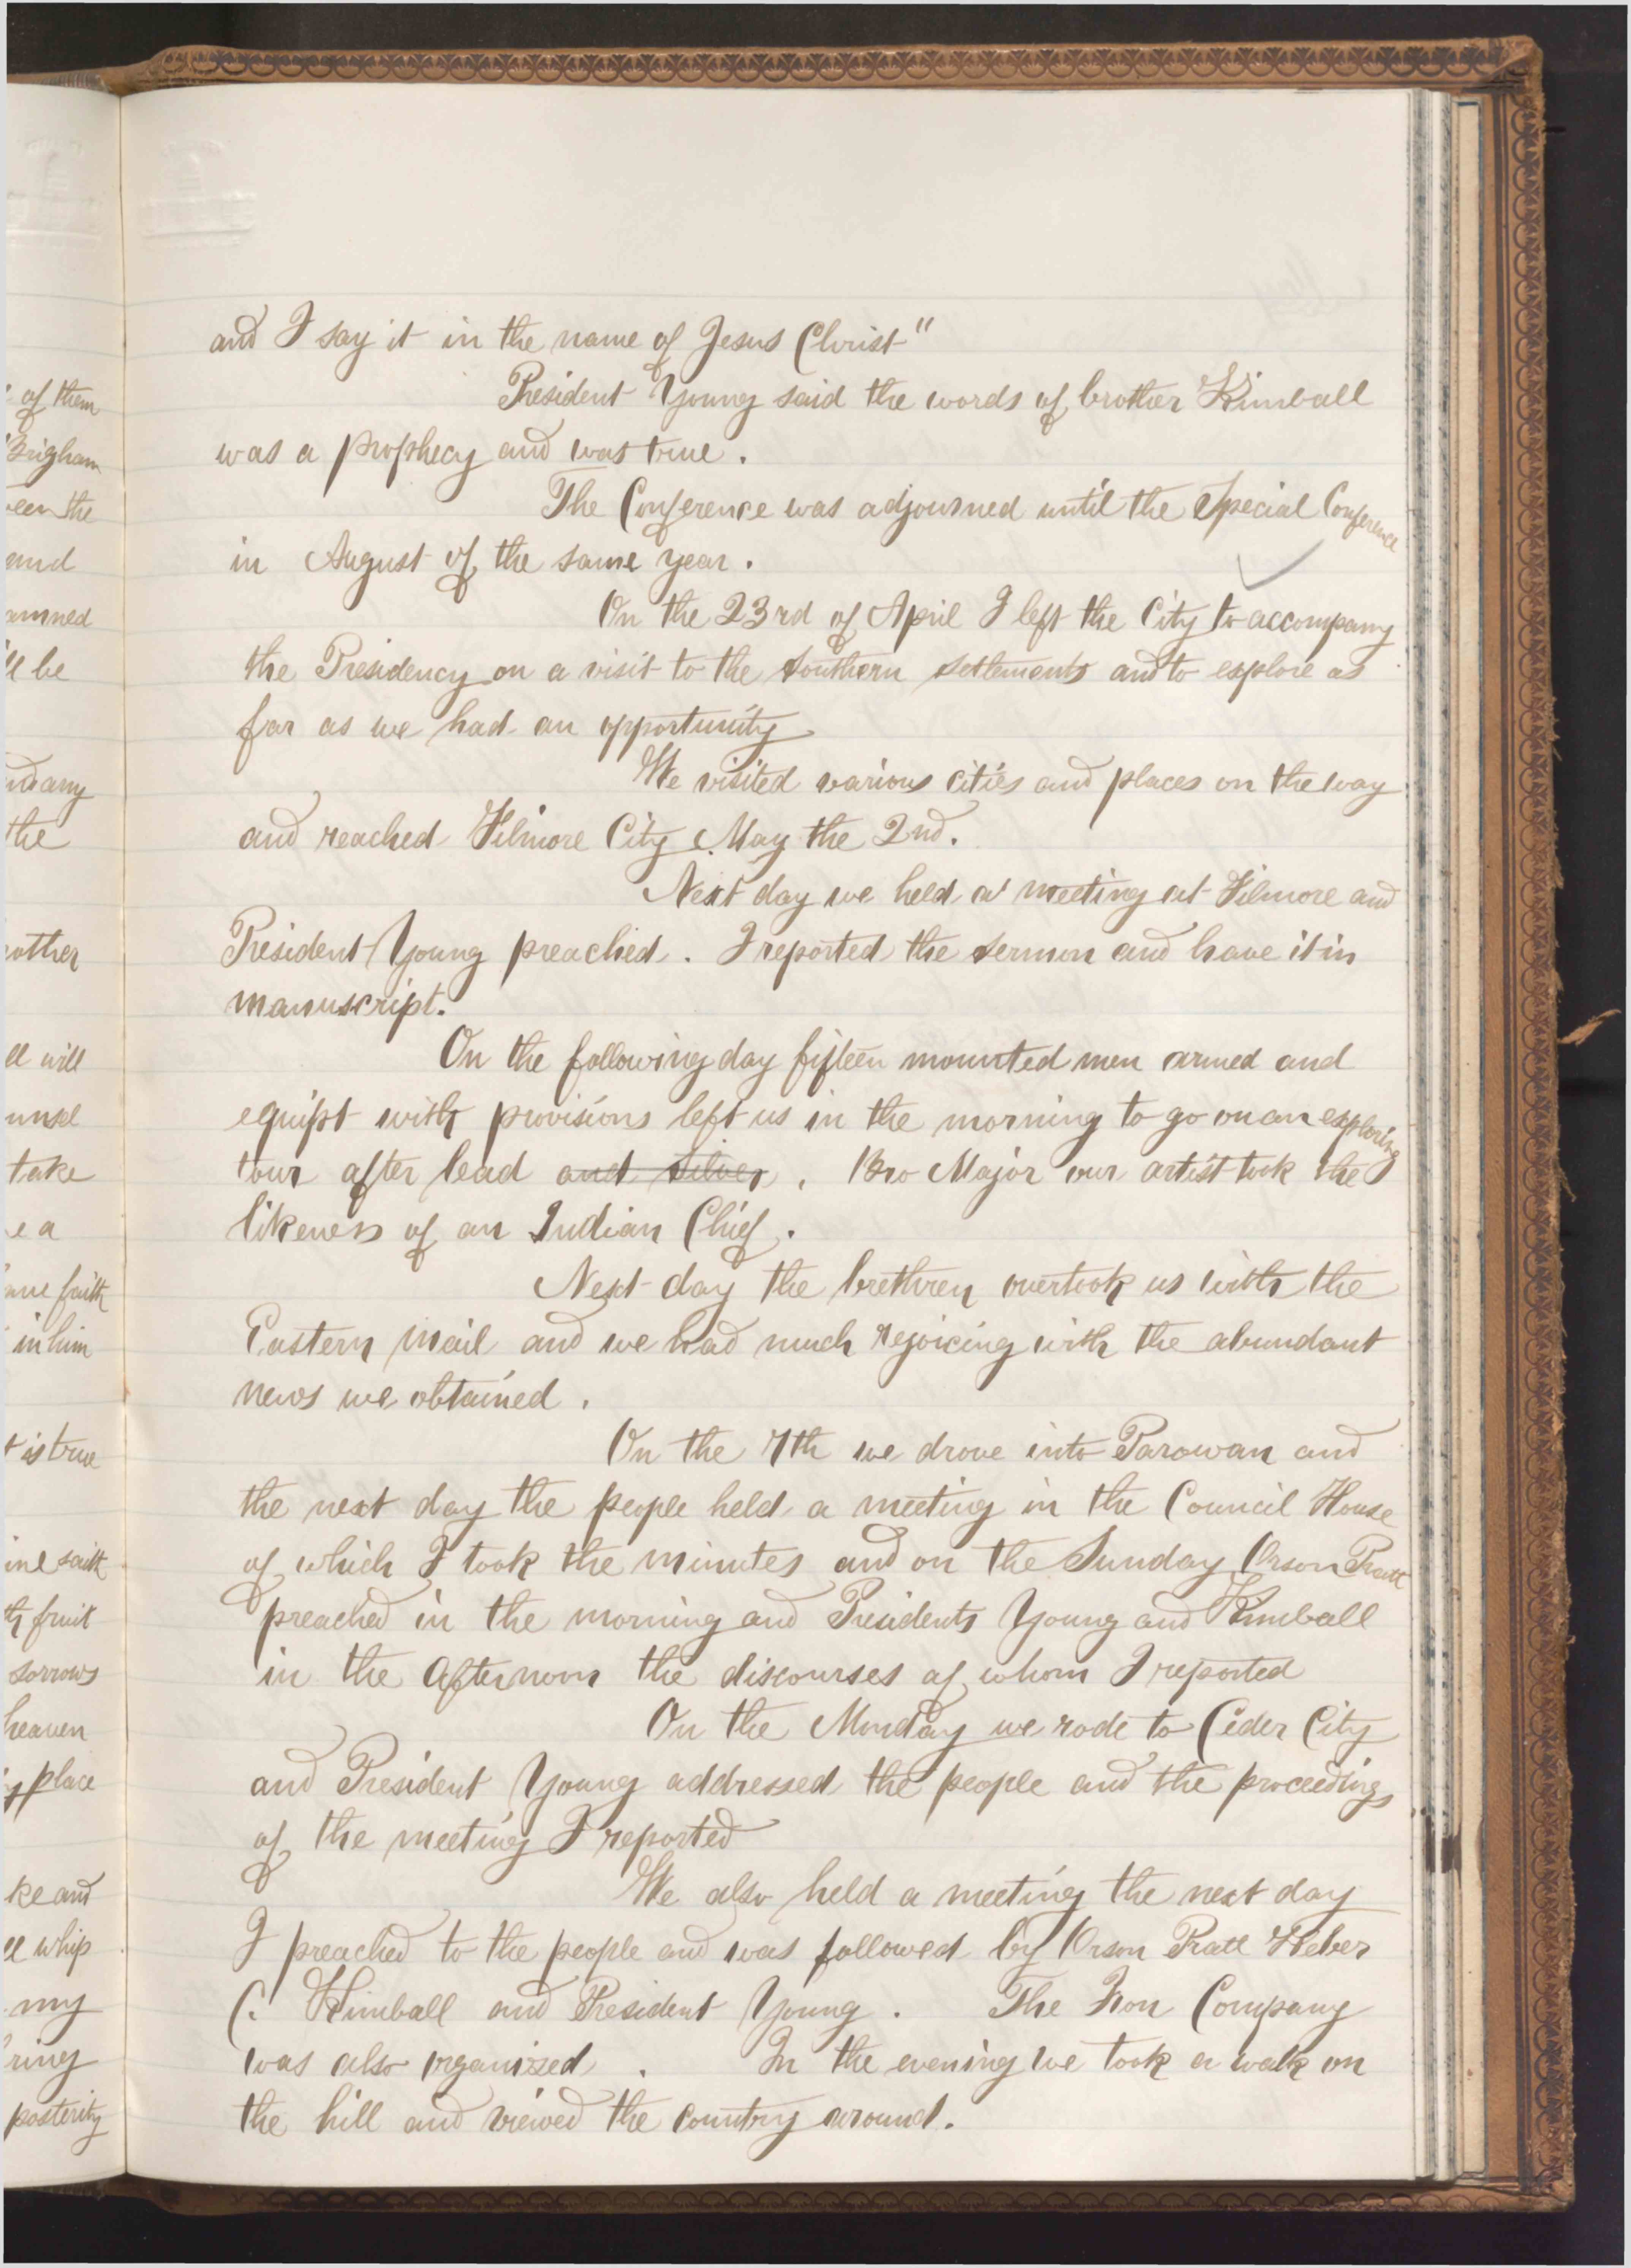 of them
Brigham
een the
and
amned
ll be
the
other
ll will
unsel
take
e a
ave faith
in him
t is true
ine saith
th fruit
sorrows
heaven
place
ke and
ll whip
my
ring
posterity
and I say it in the name of Jesus Christ"
President Young said the words of brother Kimball
was a prophecy and was true.
The Conference was adjourned until the Special Conference
in August of the same year.
On the 23rd of April I left the City to accompany
the Presidency on a visit to the Southern settlements and to explore as
far as we had an opportunity
We visited various cities and places on the way
and reached Filmore City May the 2nd.
Next day we held a meeting at Filmore and
President Young preached. I reported the sermon and have it in
manuscript.
On the following day fifteen mounted men armed and
equipt with provisions left us in the morning to go on an exploring
tour after lead and silver. Bro Major our artist took the
likeness of an Indian Chief.
Next day the brethren overtook us with the
Eastern Mail and we had much rejoicing with the abundant
news we obtained.
On the 7th we drove into Parowan and
the next day the people held a meeting in the Council House
of which I took the minutes and on the Sunday Orson Pratt
preached in the morning and Presidents Young and Kimball
in the afternoon the discourses of whom I reported
On the Monday we rode to Ceder City
and President Young addressed the people and the proceedings
of the meeting I reported
We also held a meeting the next day
I preached to the people and was followed by Orson Pratt Heber
C. Kimball and President Young. The Iron Company
was also organized. In the evening we took a walk on
the hill and viewed the country around.